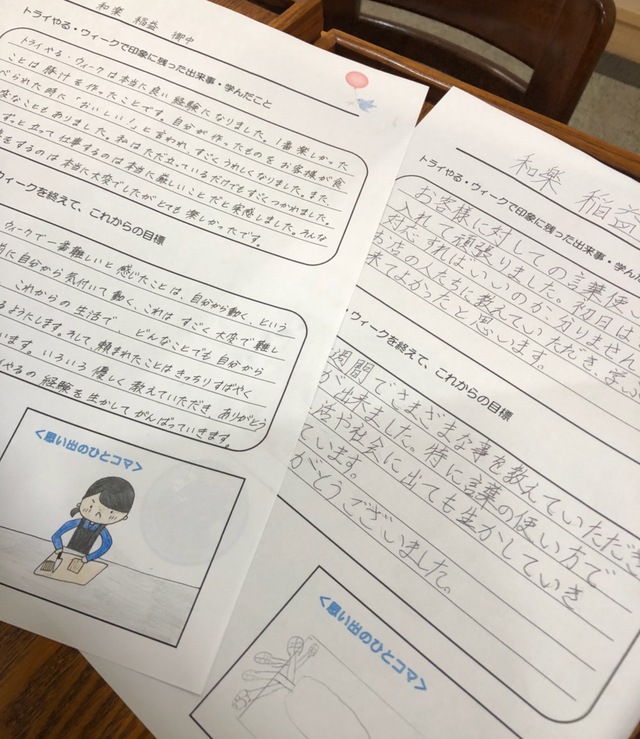 和楽 稲益 御中
トライやる・ウィークで印象に残った出来事・学んだこと
トライやる・ウィークは本当に良い経験になりました。1番楽しかった
ことは豚汁を作ったことです。自分が作ったものをお客様が食
べられた時に「おいしい!」と言われ、すごくうれしくなりました。また
変なこともありました。私はただ立っているだけでもすごくつかれました。
ずっと立って仕事するのは本当に厳しいことだと実感しました。そんな
をするのは本当に大変でしたがとても楽しかったです。
ウィークを終えて、これからの目標
ウィークで一番難しいと感じたことは、自分から動く、という
当に自分から気付いて動く、これはすごく大変で難し
これからの生活で、どんなことでも自分から
るようにします。そして頼まれたことはきっちりすばやく
います。いろいろ優しく教えていただき、ありがとう
やるの経験を生かしてがんばっていきます。
<思い出のひとコマ>
和楽 稲益
トライやる・ウィークで印象に残った出来事・学んだ
お客様に対しての言葉使い
入れて頑張りました。初日は
対応すればいいのか分りません
お店の人たちに教えていただき、学ぶ
来てよかったと思います。
ウィークを終えて、これからの目標
週間でさまざまな事を教えていただき
が出来ました。特に言葉の使い方で
活や社会に出ても生かしていき
ています。
がとうございました。
<思い出のひとコマ>